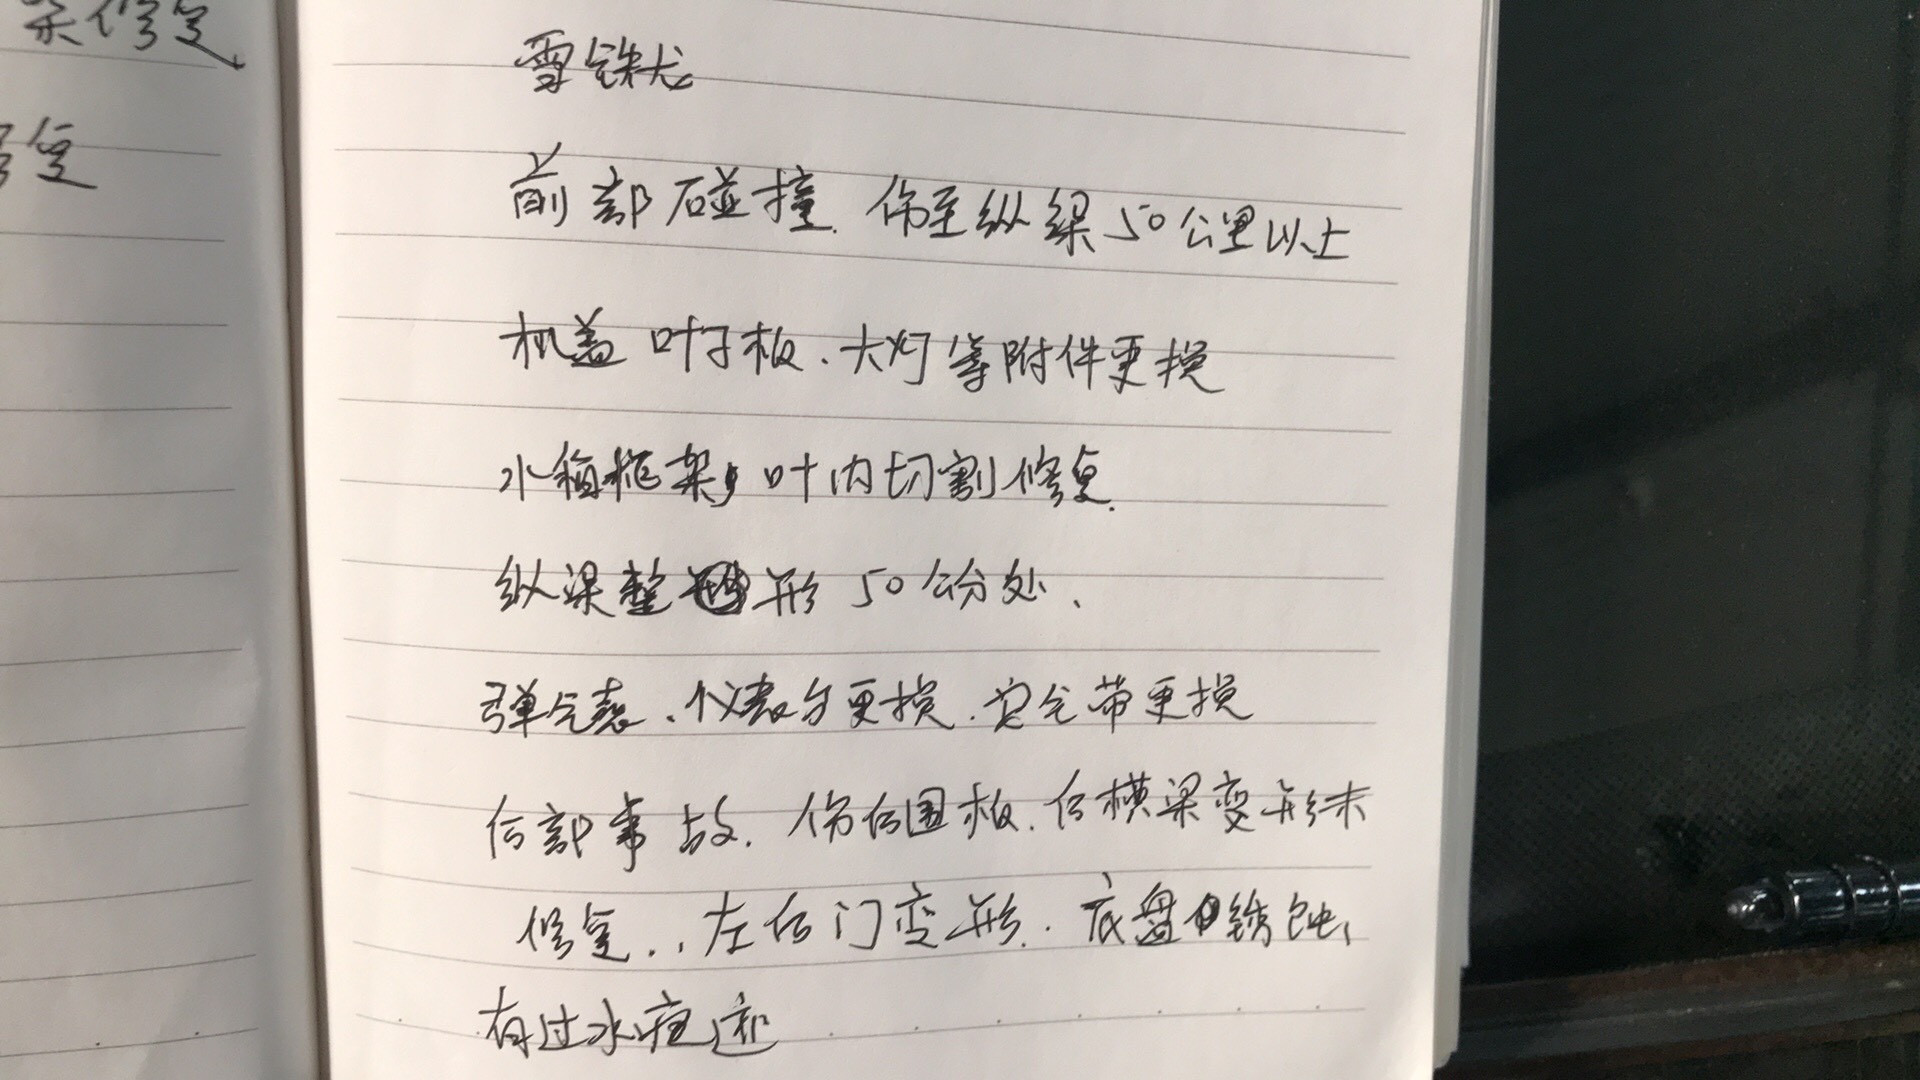 梁修复
修复
雪铁龙
前部碰撞.伤至纵梁50公里以上
机盖 叶子板.大灯等附件更换
水箱框架,叶内切割修复.
纵梁整形 50公分处、
弹气囊.仪表台更换.安全带更换
后部事故.伤后围板.后横梁变形未
修复..左后门变形.底盘锈蚀、
有过水痕迹